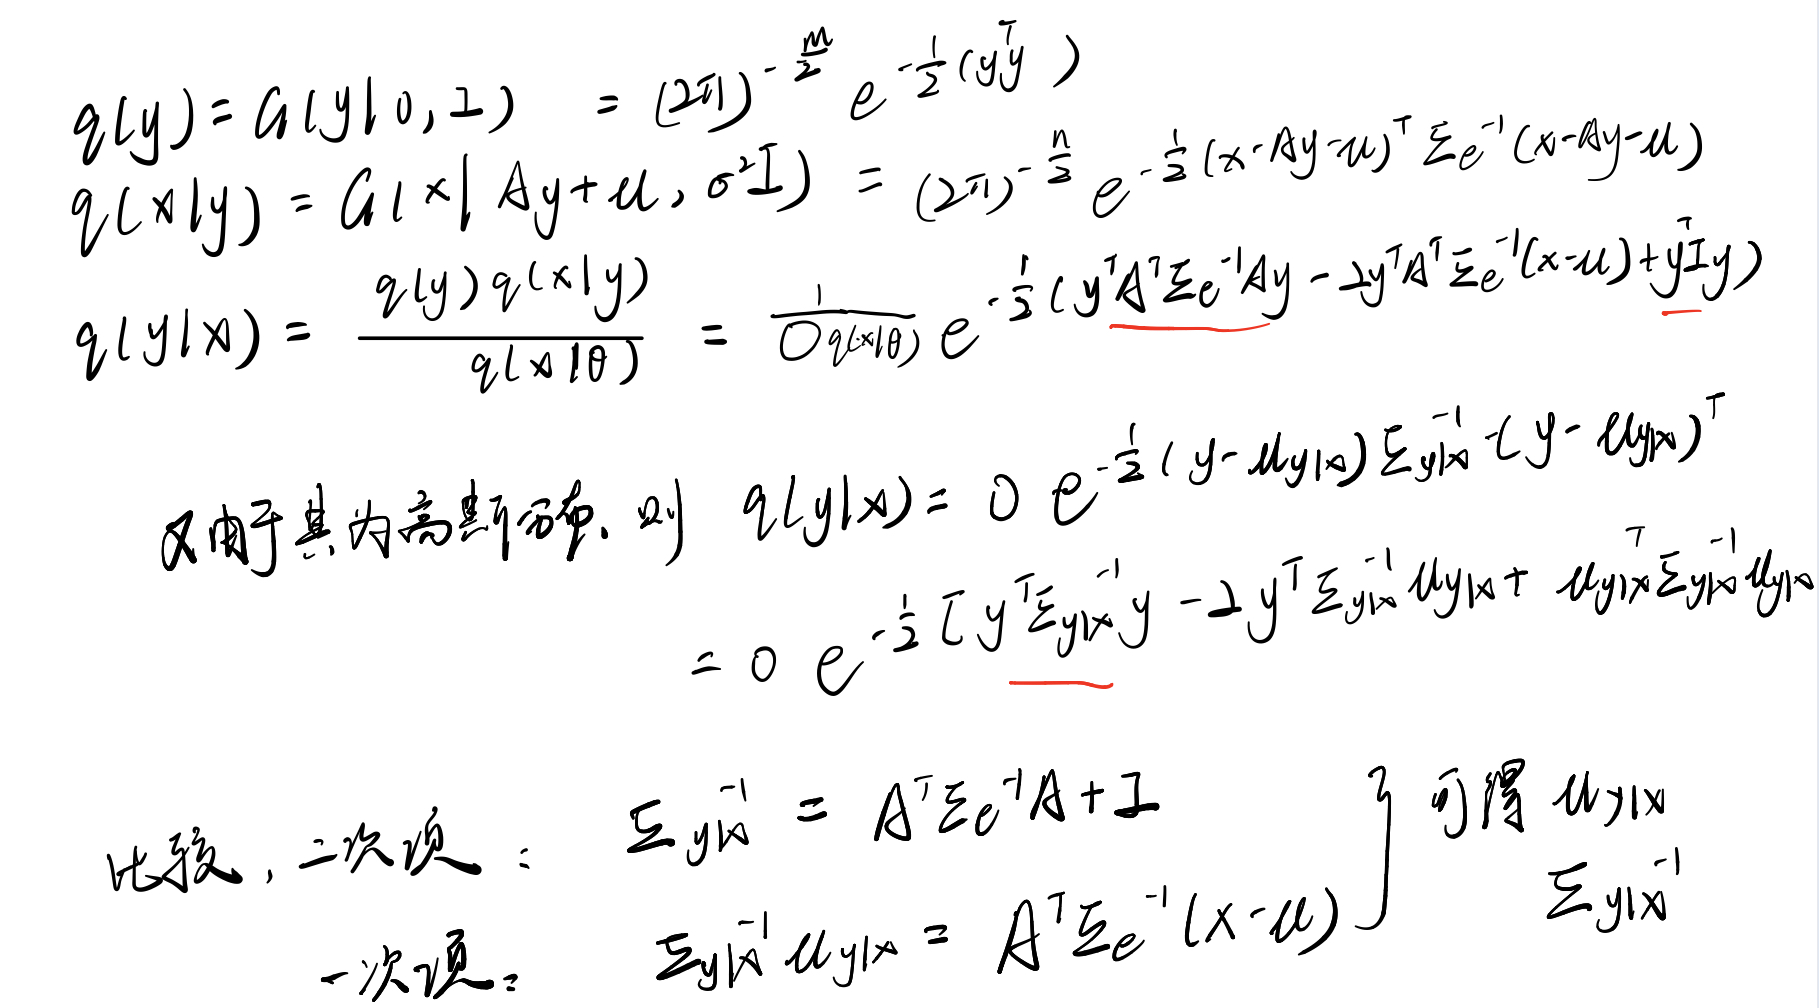 q(y) = G(y|0, I) = (2π)^{-m/2} e^{-1/2 (y^T y)}
q(x|y) = G(x| Ay+μ, σ²I) = (2π)^{-n/2} e^{-1/2 (x-Ay-μ)^T Σe^{-1} (x-Ay-μ)}
q(y|x) = q(y)q(x|y) / q(x|θ) = 1 / (O q(x|θ)) e^{-1/2 (y^T A^T Σe^{-1} Ay - 2y^T A^T Σe^{-1} (x-μ) + y^T I y)}
又由于其为高斯分布, 则 q(y|x) = O e^{-1/2 (y-μ_{y|x}) Σ_{y|x}^{-1} (y-μ_{y|x})^T}
= O e^{-1/2 [y^T Σ_{y|x}^{-1} y - 2y^T Σ_{y|x}^{-1} μ_{y|x} + μ_{y|x}^T Σ_{y|x}^{-1} μ_{y|x}}
比较, 二次项: Σ_{y|x}^{-1} = A^T Σe^{-1} A + I } 可得 μ_{y|x}
Σ_{y|x}^{-1}
一次项: Σ_{y|x}^{-1} μ_{y|x} = A^T Σe^{-1} (x-μ)